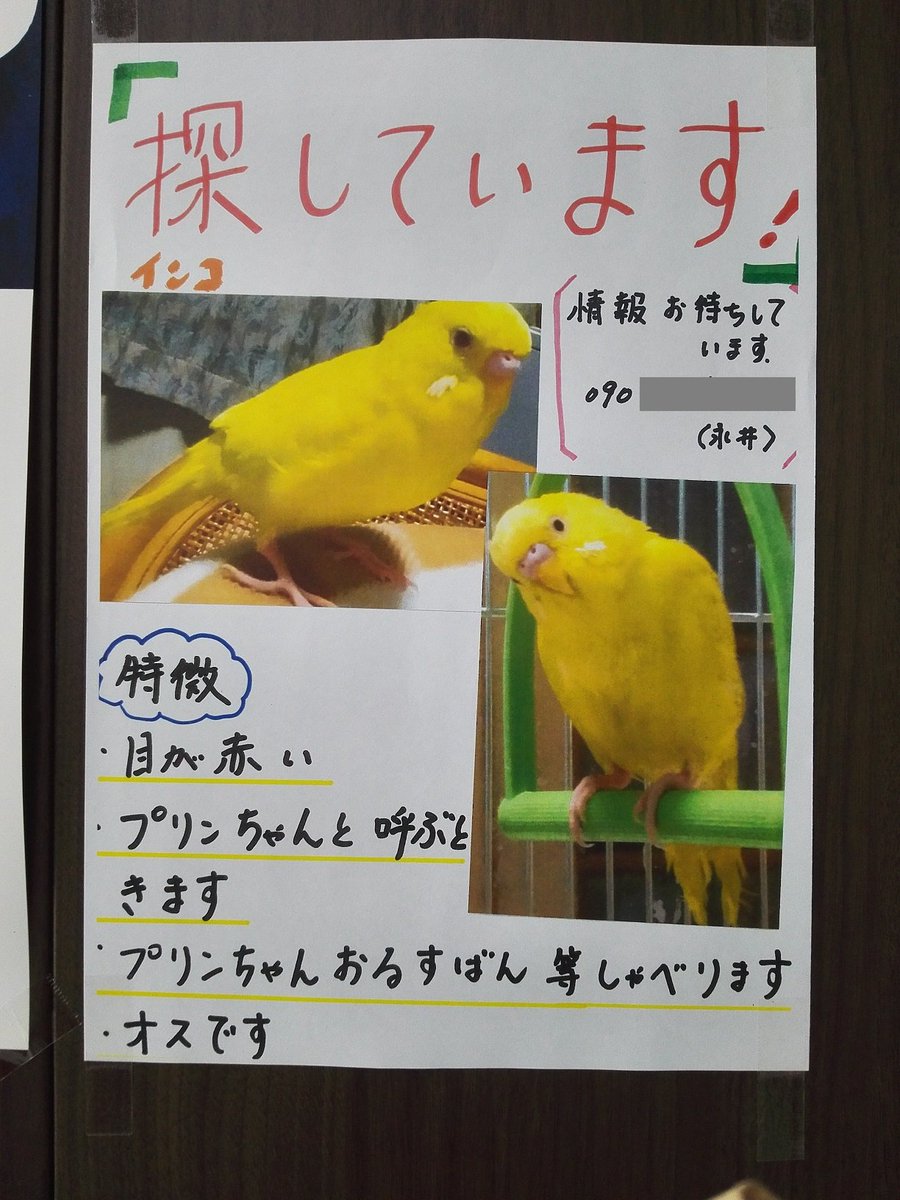 「探しています!」
インコ
情報お待ちして
います.
090
(永井)
特徴
・目が赤い
・プリンちゃんと呼ぶと
きます
・プリンちゃんおるすばん等しゃべります
・オスです